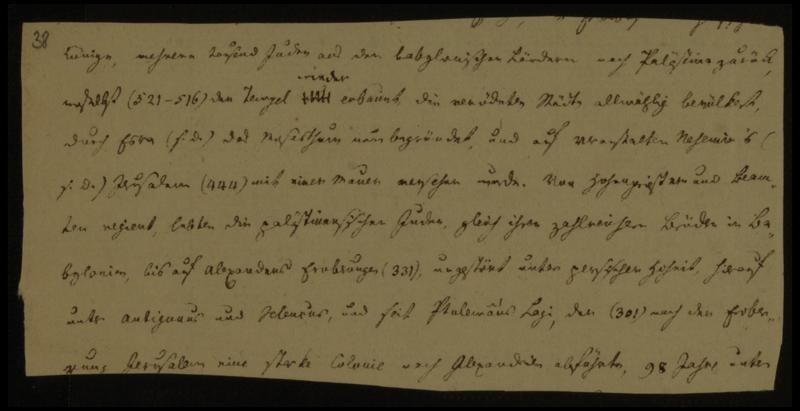 38
Könige, mehrere tausend Juden aus den babylonischen Ländern nach Palästina zurück,
woselbst (521–516) der Tempel wieder erbaut, die verödeten Städte allmählig bevölkert,
durch Esra (s. d.) das Mosesthum neu begründet, und auf veranstalten Nehemia's (
s. d.) Jerusalem (444) mit einer Mauer versehen wurde. Von Hohenpriestern und Beam-
ten regiert, lebten die palästinensischen Juden, gleich ihren zahlreichern Brüder in Ba-
bylonien, bis auf Alexanders Eroberungen (331), ungestört unter persischer Hoheit, hierauf
unter Antigonus und Seleucus, und seit Ptolemäus Lagi, der (301) nach der Erobe-
rung Jerusalem eine starke Colonie nach Alexandrien abführte, 98 Jahre unter